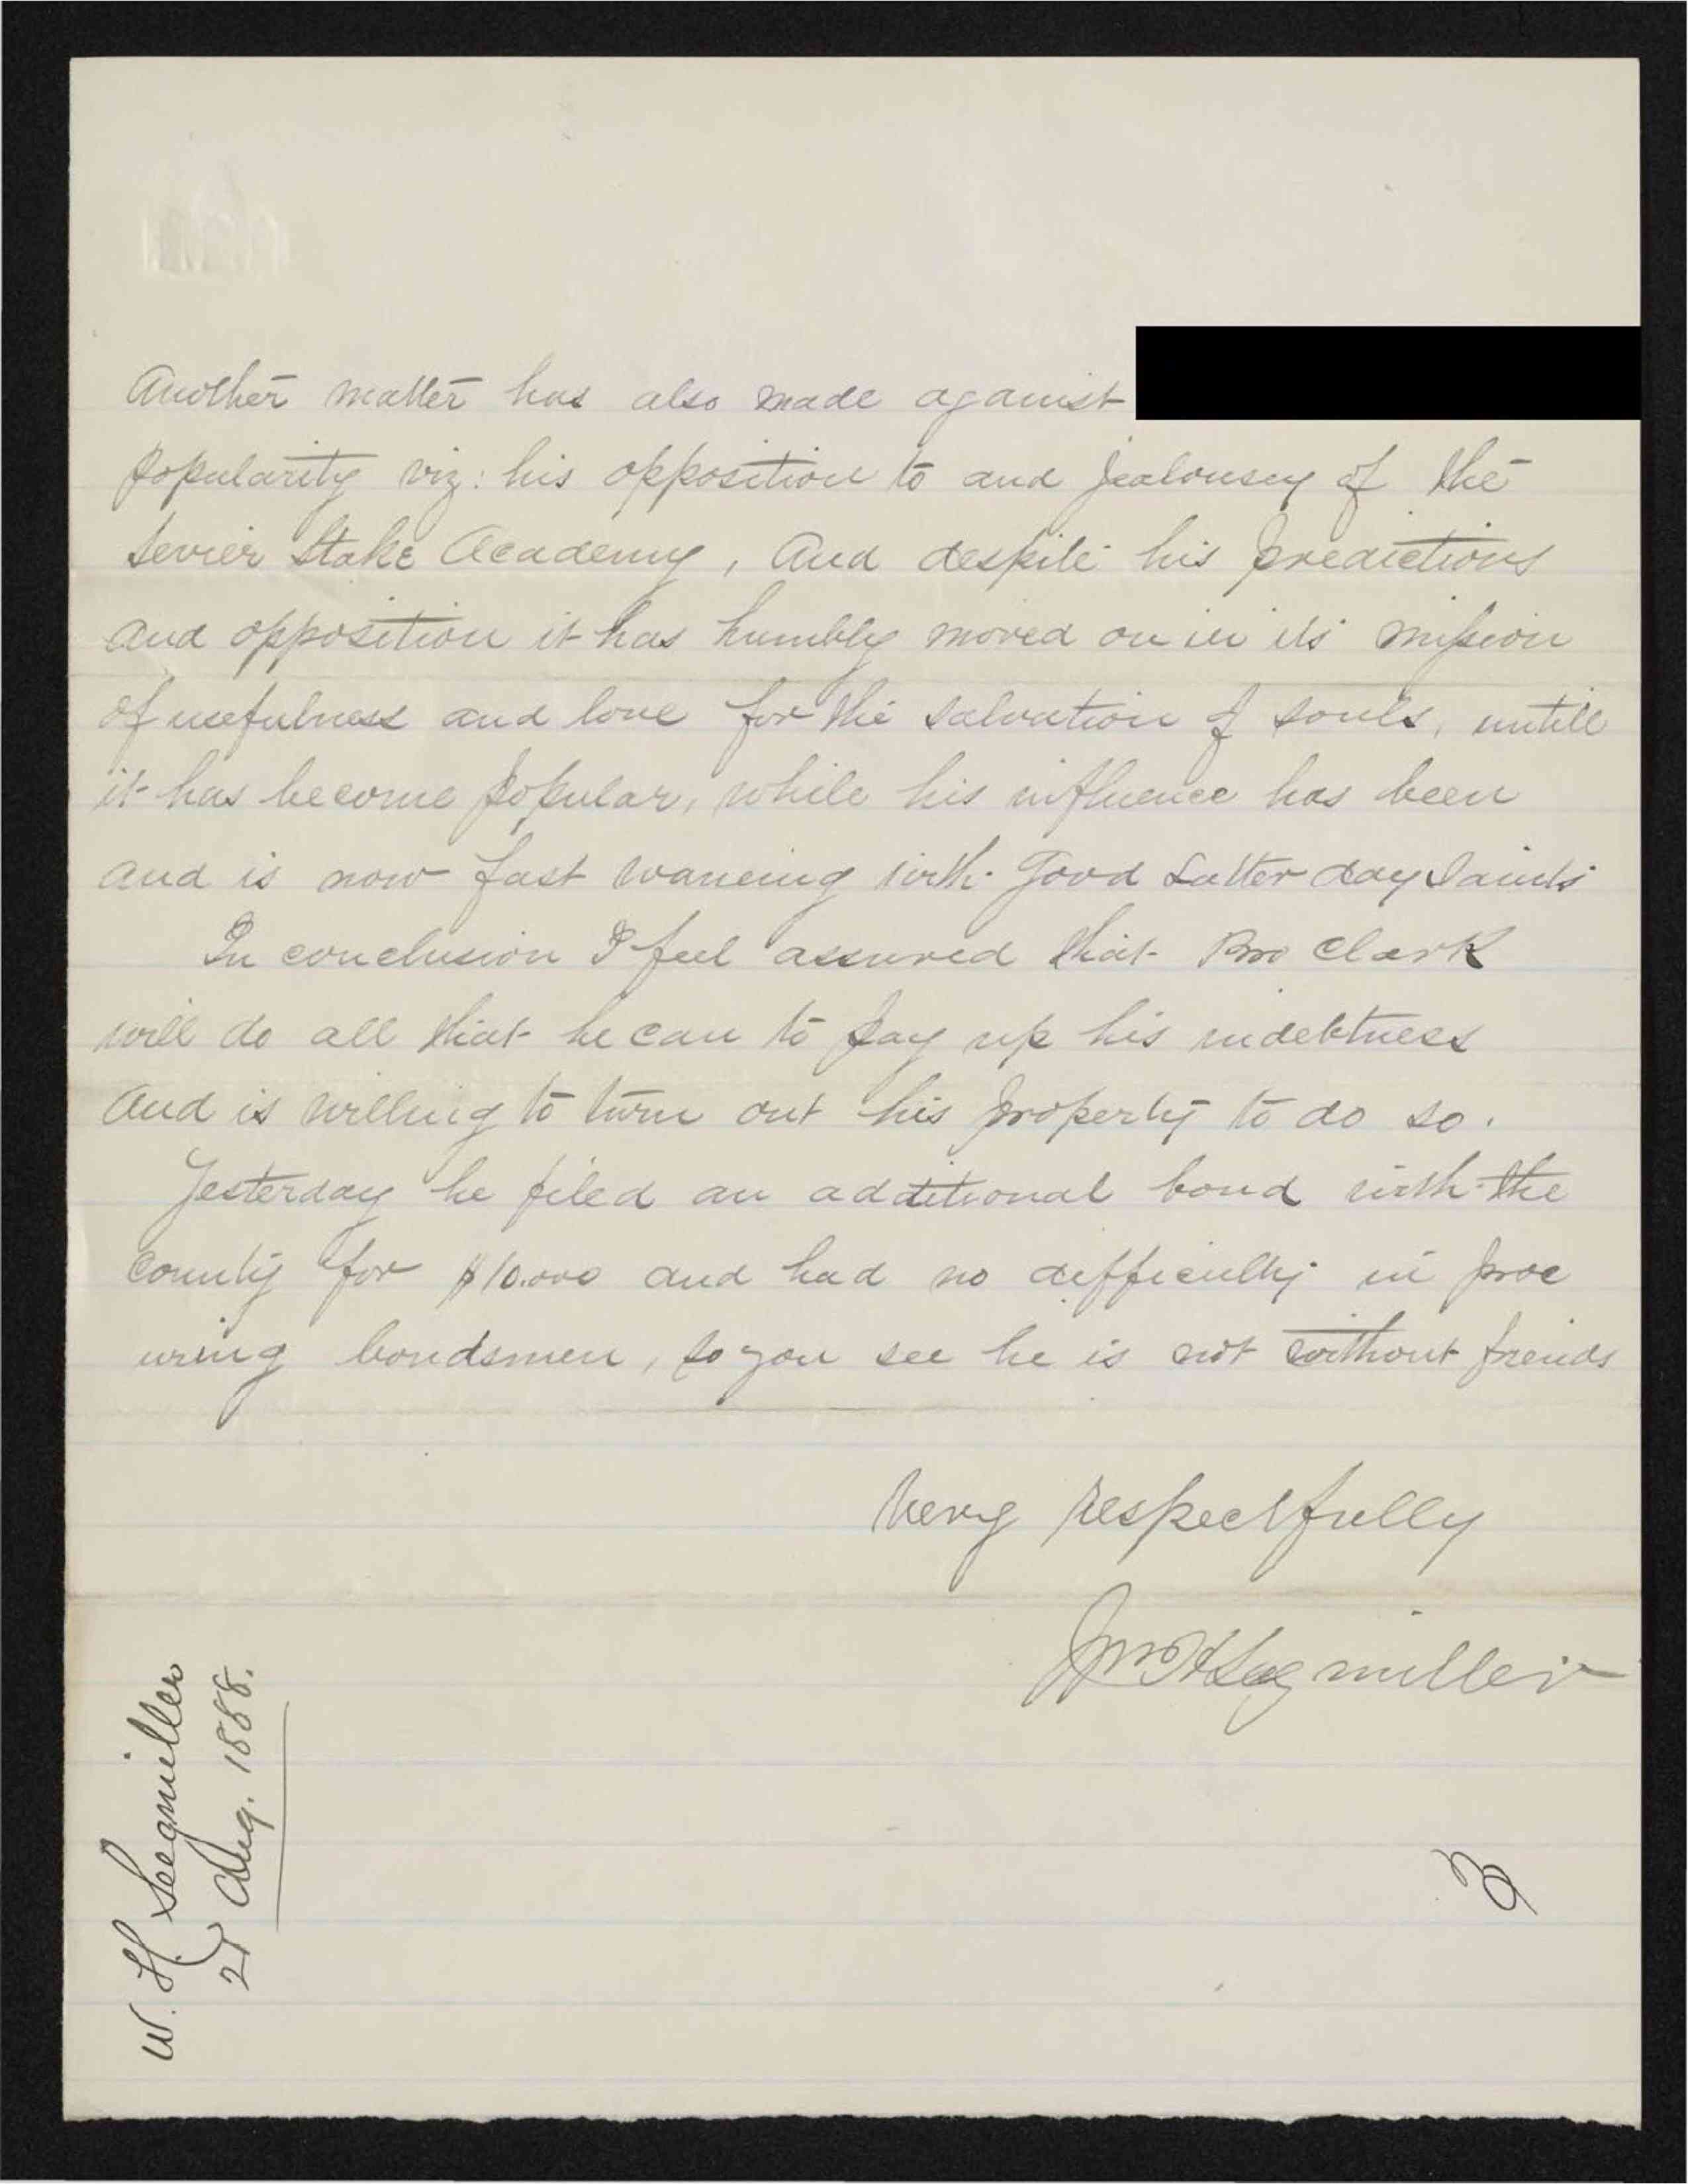 Another matter has also made against
popularity viz: his opposition to and jealousey of the
Sevier Stake Academy, And despite his predictions
and opposition it has humbly moved on in its mission
of usefulness and love for the salvation of souls, untill
it has become popular, while his influence has been
and is now fast waneing with good Latter day Saints
In conclusion I feel assured that Bro Clark
will do all that he can to pay up his indebtness
And is willing to turn out his property to do so.
Yesterday he filed an additional bond with the
County for $10.000 and had no difficulty in proc
uring bondsmen, so you see he is not without friends
Very respectfully
Wm H Segmiller
W. H. Seegmiller
2 Aug. 1888.
3